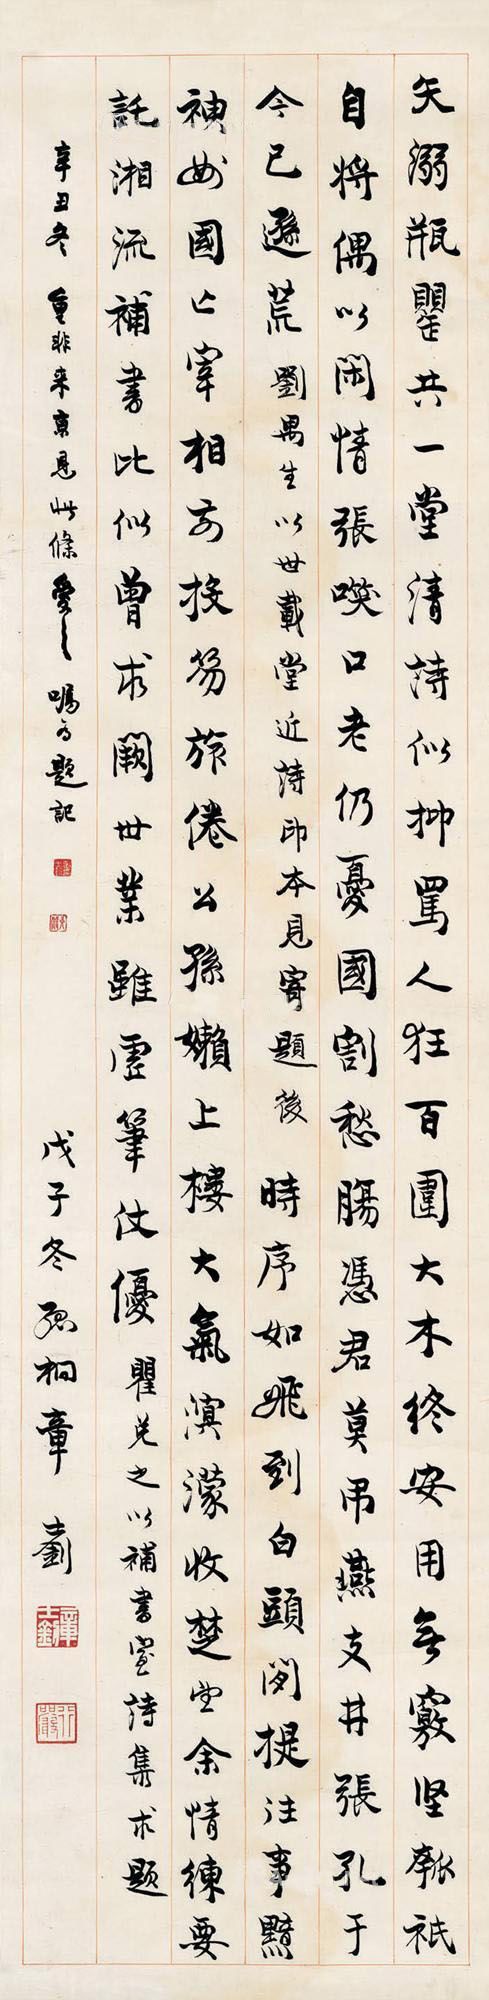 矢溺瓶罌共一堂清詩似抑罵人狂百圍大木終安用無竅堅瓠衹
自將偶以閑情張喙口老仍憂國割愁腸憑君莫弔燕支井張孔于
今已遜荒劉禺生以世載堂近詩印本見寄題後 時序如飛到白頭閑提往事黯
神州國亡宰相前投笏旅倦公孫嬾上樓大氣溟濛收楚望余情練要
託湘流補書比似曾求闕世業雖虛筆仗優 瞿兌之以補書堂詩集求題
辛丑冬重非來京見此條愛之囑爲題記
戊子冬孤桐章士釗
章士釗
行嚴